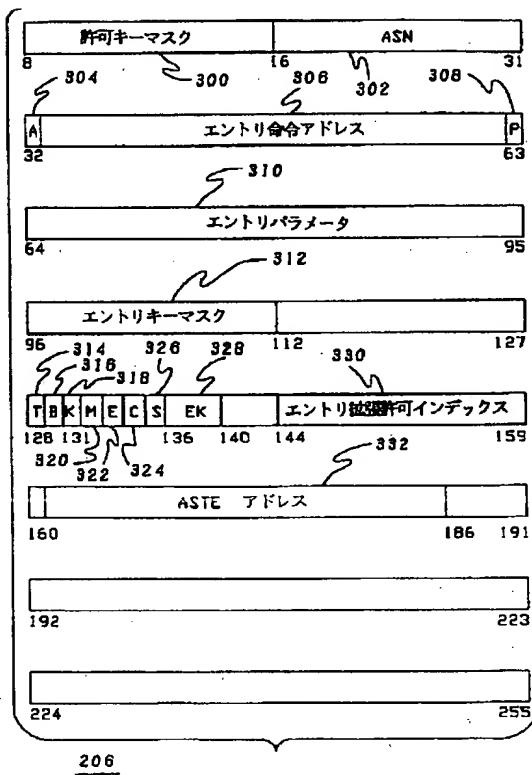 許可キーマスク ASN
8 16 31
304 300 302 306 308
A エントリ命令アドレス P
32 63
310
エントリパラメータ
64 95
312
エントリキーマスク
96 112 127
314 316 318 326 328 330
T B K M E C S EK エントリ拡張許可インデックス
128 131 136 140 144 159
320 322 324 332
ASTE アドレス
160 186 191
192 223
224 255
206